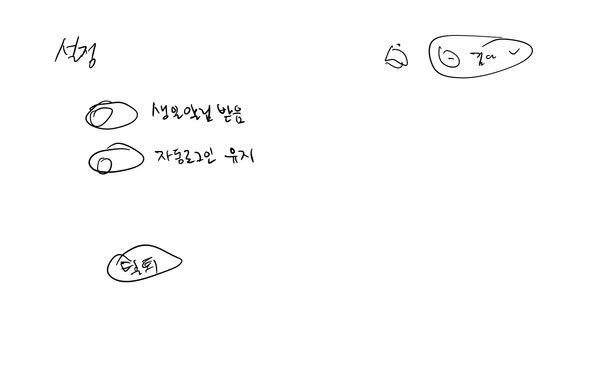 설정
생일알림 받음
자동로그인 유지
탈퇴